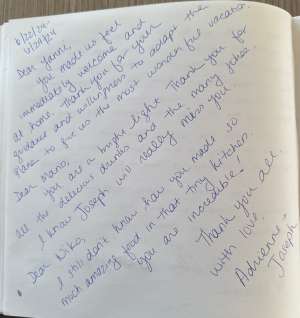 6/20/24-
6/29/24
Dear Yanni,
You made us feel
immediately welcome and
at home. Thank you for your
guidance and willingness to adapt the
plans to give us the most wonderful vacation.
Dear Mario,
You are a bright light. Thank you for
all the delicious drinks and the many jokes.
I know Joseph will really miss you.
Dear Niko,
I still don't know how you made so
much amazing food in that tiny kitchen.
You are incredible!
Thank you all
with love,
Adrienne +
Joseph